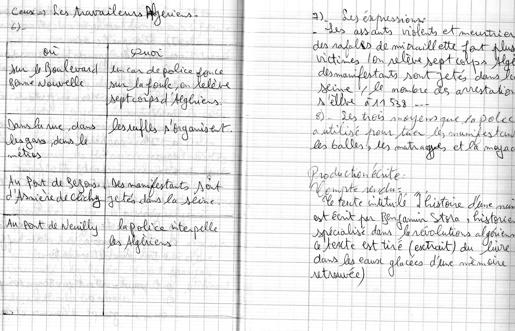 Ceux → Les travailleurs Algériens.
6)-
où
quoi
sur le Boulevard
Bonne Nouvelle
un car de police fonce
sur la foule, on relève
sept corps d'Algériens.
Dans la rue, dans
les gares, dans le
métros
les rafles s'organisent.
Au Pont de Bezons,
d'Asnière de Clichy
Des manifestants sont
jetés dans la seine.
Au Pont de Neuilly
la police interpelle
les Algériens
7)- Les expressions
- Les assauts violents et meurtriers
des rafales de mitraillette font plus
victimes / on relève sept corps Algé
des manifestants sont jetés dans la
seine / le nombre des arrestation
s'élève à 11 538 ---
8)- Les trois moyens que la police
a utilisé pour tuer les manifestan
les balles, les matraques et la noyad
Production écrite:
Compte rendu:
Le texte intitulé "l'histoire d'une
est écrit par Benjamin Stora, historien
spécialisé dans la révolutions algérienne
le texte est tiré (extrait) du livre
dans les eaux glacées d'une mémoire
retrouvée)